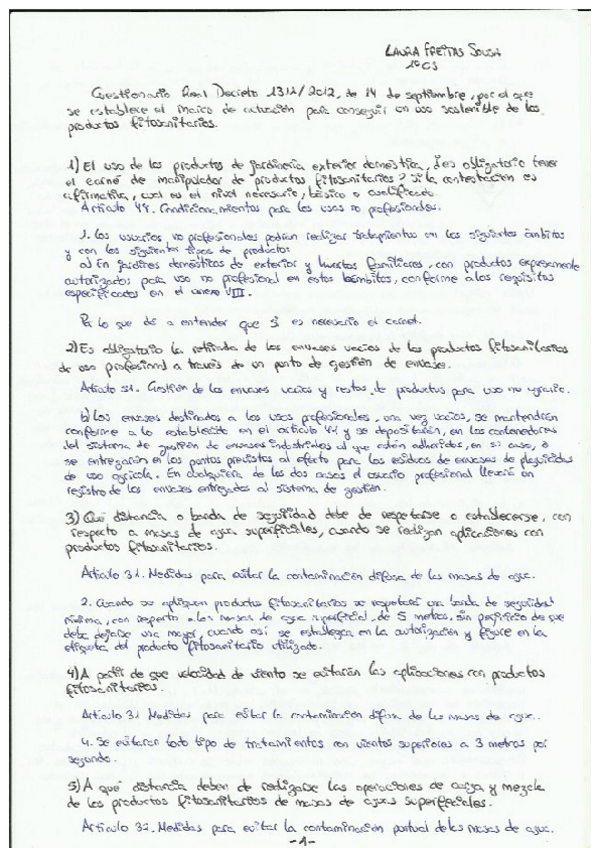 LAURA FREITAS SOUSA
1º CS
Cuestionario Real Decreto 1312/2012, de 14 de septiembre, por el que
se establece el marco de actuación para conseguir un uso sostenible de los
productos fitosanitarios.
1) El uso de los productos de jardinería exterior doméstica, ¿es obligatorio tener
el carné de manipulador de productos fitosanitarios? si la contestación es
afirmativa, cual es el nivel necesario, básico o cualificado.
Artículo 48. Condicionamientos para los usos no profesionales.
1. Los usuarios no profesionales podrán realizar tratamientos en los siguientes ámbitos
y con los siguientes tipos de productos:
a) En jardines domésticos de exterior y huertos familiares, con productos expresamente
autorizados para uso no profesional en estos ámbitos, conforme a los requisitos
especificados en el anexo VIII.
Por lo que da a entender que si es necesario el carnet.
2) Es obligatorio la retirada de los envases vacios de los productos fitosanitarios
de uso profesional a través de un punto de gestión de envase.
Artículo 51. Gestión de los envases vacios y restos de productos para uso no agrario.
b) Los envases destinados a los usos profesionales, una vez vacios, se mantendrán
conforme a lo establecido en el artículo 41 y se depositarán, en los contenedores
del sistema de gestión de envases industriales al que estén adheridos, en su caso, o
se entregarán en los puntos previstos al efecto para los residuos de envases de plaguicidas
de uso agrícola. En cualquiera de los dos casos el usuario profesional llevará un
registro de los envases entregados al sistema de gestión.
3) Qué distancia o banda de seguridad debe de respetarse o establecerse, con
respecto a masas de agua superficiales, cuando se realizan aplicaciones con
productos fitosanitarios.
Artículo 31. Medidas para evitar la contaminación difusa de las masas de agua.
2. Cuando se apliquen productos fitosanitarios se respetará una banda de seguridad
mínima, con respecto a las masas de agua superficial, de 5 metros, sin perjuicio de que
deba dejarse una mayor, cuando así se establezca en la autorización y figure en la
etiqueta del producto fitosanitario utilizado.
4) A partir de que velocidad de viento se evitarán las aplicaciones con productos
fitosanitarios.
Artículo 31. Medidas para evitar la contaminación difusa de las masas de agua.
4. Se evitaran todo tipo de tratamientos con vientos superiores a 3 metros por
segundo.
5) A qué distancia deben de realizarse las operaciones de carga y mezcla
de los productos fitosanitarios de masas de aguas superficiales.
Artículo 32. Medidas para evitar la contaminación puntual de las masas de agua.
-1-